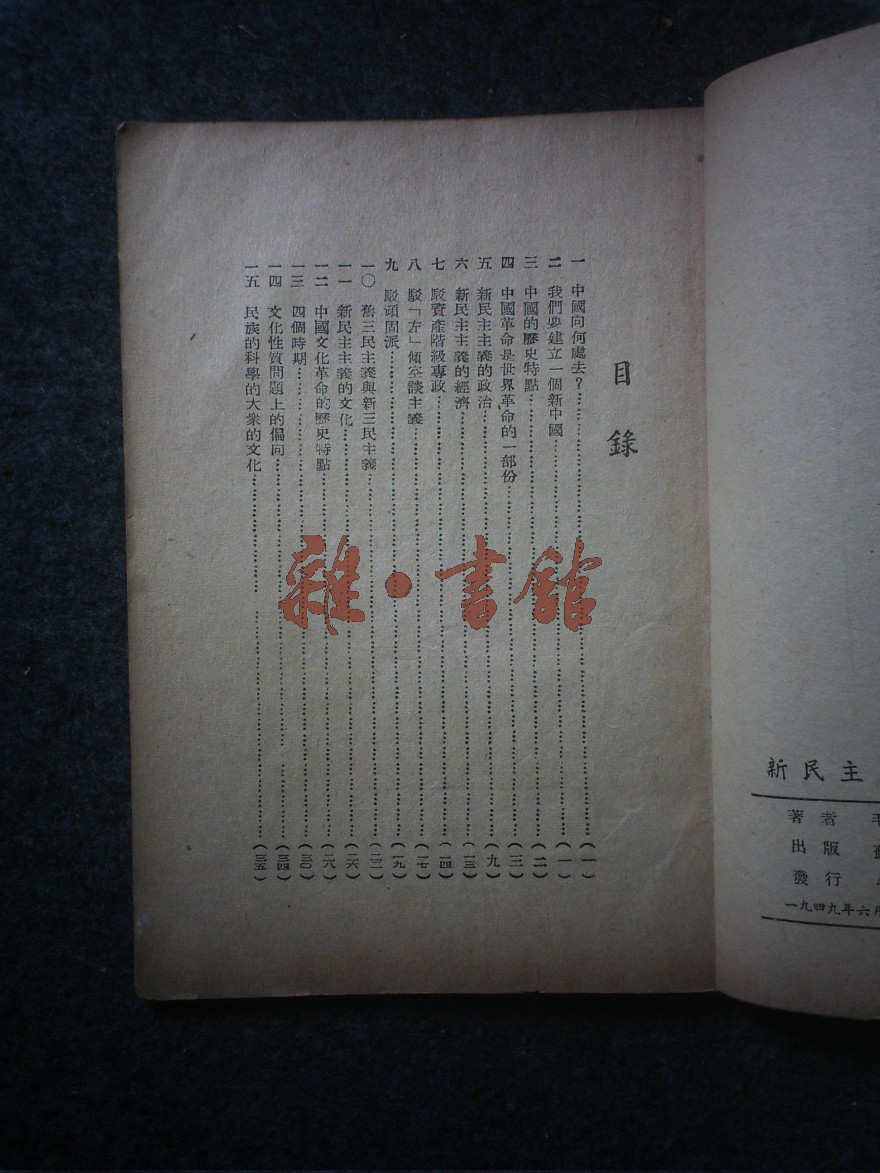 目錄
一 中國向何處去？……(一)
二 我們要建立一個新中國……(一)
三 中國的歷史特點……(二)
四 中國革命是世界革命的一部份……(三)
五 新民主主義的政治……(九)
六 新民主主義的經濟……(一三)
七 駁資產階級專政……(一四)
八 駁「左」傾空談主義……(一七)
九 駁頑固派……(一九)
一〇 舊三民主義與新三民主義……(二二)
一一 新民主主義的文化……(二六)
一二 中國文化革命的歷史特點……(二八)
一三 四個時期……(三〇)
一四 文化性質問題上的偏向……(三四)
一五 民族的科學的大衆的文化……(三五)
雜·書館
新民主
著者
出版
發行
一九四九年六月